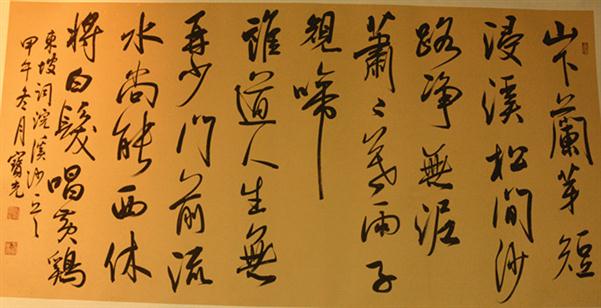 山下蘭芽短
浸溪松間沙
路净無泥
蕭〻暮雨子
規啼
誰道人生無
再少門前流
水尚能西休
将白髮唱黄鷄
東坡词浣溪沙
甲午冬月寶光